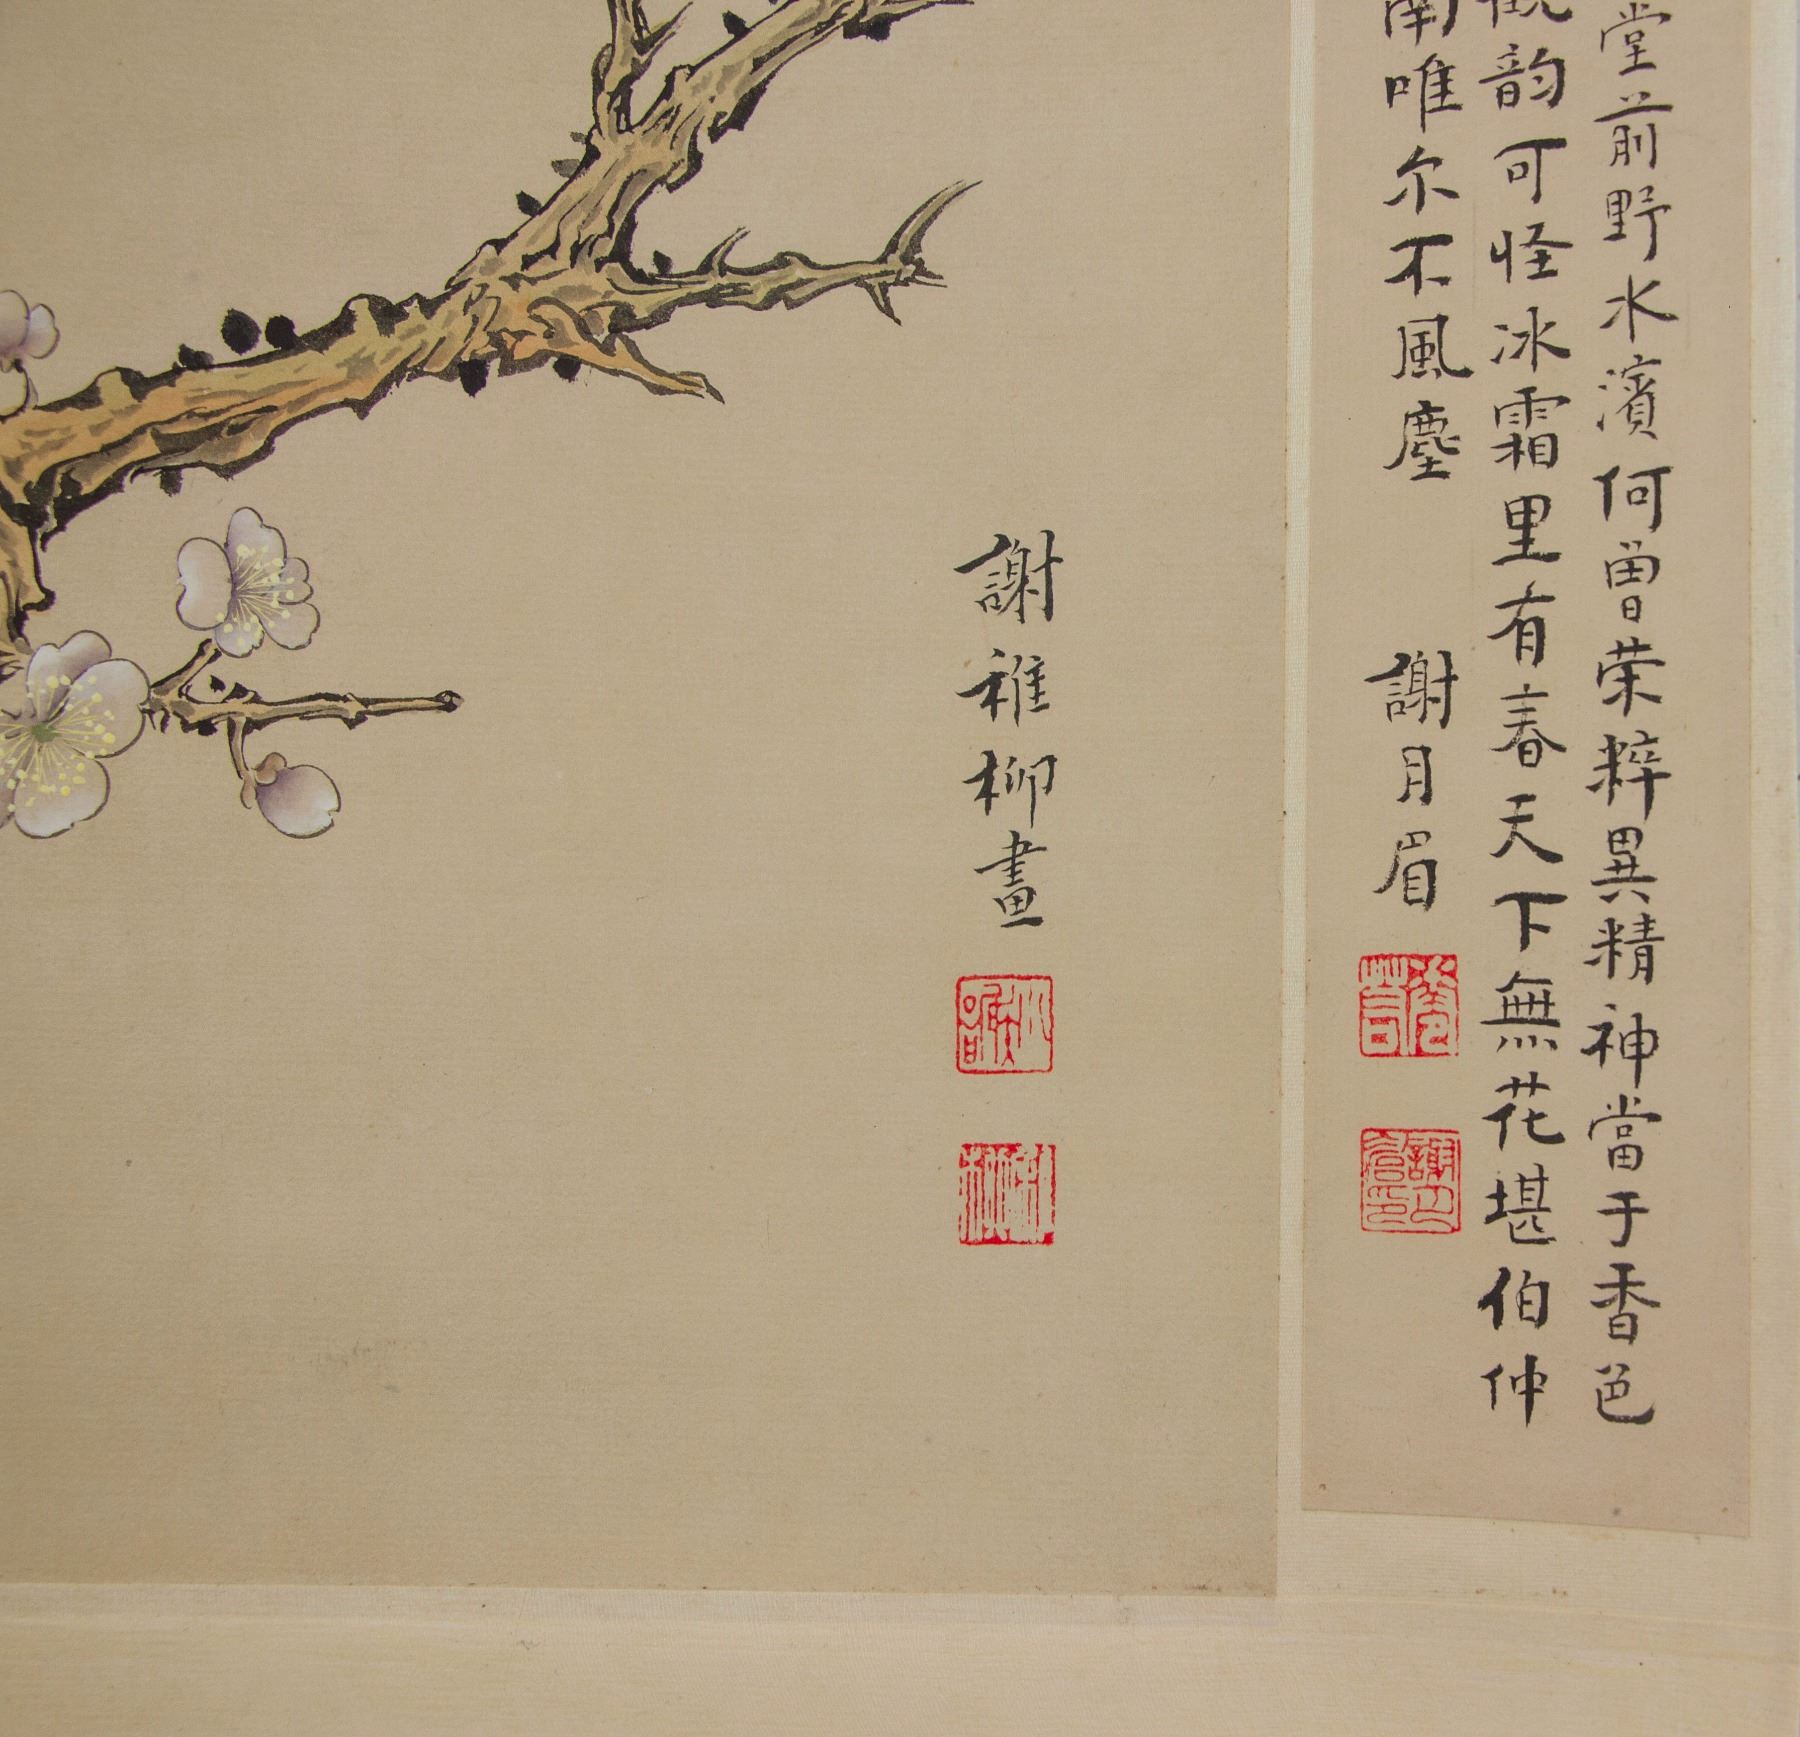 堂前野水濱何曾荣粹異精神當于香色
韵可怪冰霜里有春天下無花堪伯仲
南唯尔不風塵
謝月眉
謝稚柳畫